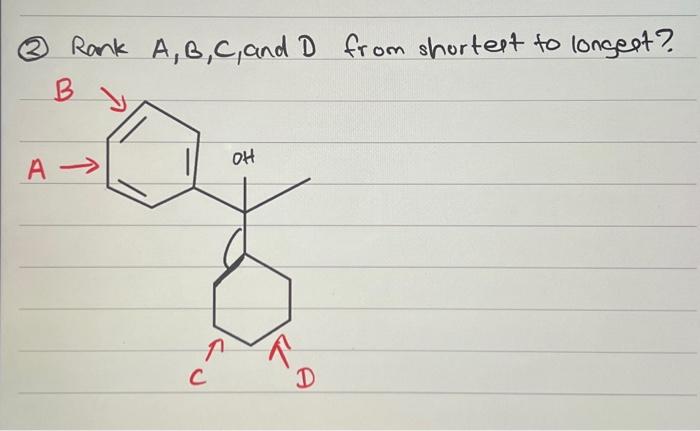 ② Rank A, B, C, and D from shortest to longest?
B
A
OH
C
D